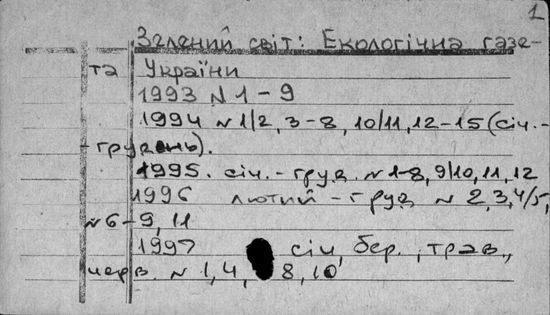 1
Зелений світ: Екологічна газе-
та України
1993 N 1-9
1994 N 1/2, 3-8, 10/11, 12-15 (січ.-
грудень).
1995. січ.-груд. N 1-8, 9/10, 11, 12
1996 лютий-груд N 2, 3, 4/5,
N 6-9, 11
1997 січ, бер., трав.,
черв. N 1, 4, 8, 10